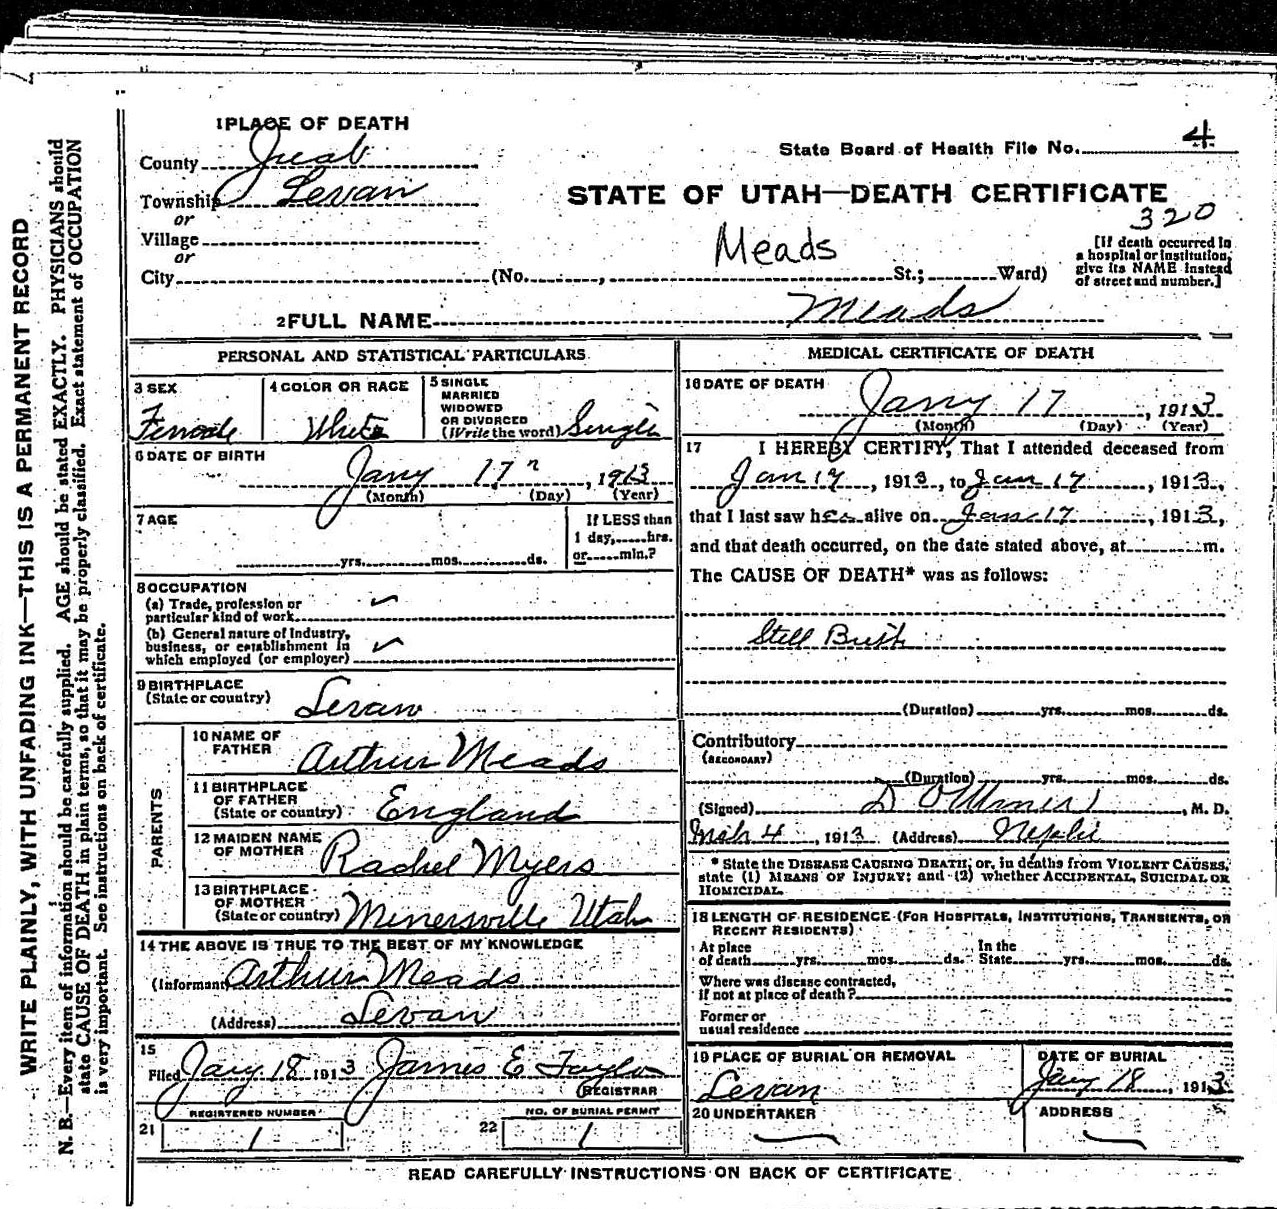 WRITE PLAINLY, WITH UNFADING INK—THIS IS A PERMANENT RECORD
N. B.—Every item of information should be carefully supplied. AGE should be stated EXACTLY. PHYSICIANS should
state CAUSE OF DEATH in plain terms, so that it may be properly classified. Exact statement of OCCUPATION
is very important. See instructions on back of certificate.
1 PLACE OF DEATH
County Juab
State Board of Health File No. 4
Township Levan
STATE OF UTAH—DEATH CERTIFICATE
or
320
Village
Meads
or
[If death occurred in
a hospital or institution,
give its NAME instead
of street and number.]
City (No. , St.; Ward)
2 FULL NAME Meads
PERSONAL AND STATISTICAL PARTICULARS
3 SEX
Female
4 COLOR OR RACE
White
5 SINGLE
MARRIED
WIDOWED
OR DIVORCED
(Write the word) Single
6 DATE OF BIRTH
Jany 17, 1913
(Month) (Day) (Year)
7 AGE
yrs. mos. ds.
If LESS than
1 day, hrs.
or min.?
8 OCCUPATION
(a) Trade, profession or
particular kind of work
(b) General nature of Industry,
business, or establishment in
which employed (or employer)
9 BIRTHPLACE
(State or country) Levan
PARENTS
10 NAME OF
FATHER Arthur Meads
11 BIRTHPLACE
OF FATHER
(State or country) England
12 MAIDEN NAME
OF MOTHER Rachel Myers
13 BIRTHPLACE
OF MOTHER
(State or country) Minersville Utah
14 THE ABOVE IS TRUE TO THE BEST OF MY KNOWLEDGE
(Informant) Arthur Meads
(Address) Levan
15
Filed Jany 18 1913 James E Taylor
REGISTRAR
REGISTERED NUMBER
21 1
NO. OF BURIAL PERMIT
22 1
MEDICAL CERTIFICATE OF DEATH
16 DATE OF DEATH
Jany 17, 1913
(Month) (Day) (Year)
17 I HEREBY CERTIFY, That I attended deceased from
Jan 17, 1913, to Jan 17, 1913,
that I last saw her alive on Jan 17, 1913,
and that death occurred, on the date stated above, at m.
The CAUSE OF DEATH* was as follows:
Still Birth
(Duration) yrs. mos. ds.
Contributory
(SECONDARY)
(Duration) yrs. mos. ds.
(Signed) , M. D.
Mch 4, 1913 (Address) Nephi
* State the DISEASE CAUSING DEATH; or, in deaths from VIOLENT CAUSES,
state (1) MEANS OF INJURY; and (2) whether ACCIDENTAL, SUICIDAL OR
HOMICIDAL.
18 LENGTH OF RESIDENCE (FOR HOSPITALS, INSTITUTIONS, TRANSIENTS, OR
RECENT RESIDENTS)
At place
of death yrs. mos. ds.
In the
State yrs. mos. ds.
Where was disease contracted,
if not at place of death?
Former or
usual residence
19 PLACE OF BURIAL OR REMOVAL
Levan
DATE OF BURIAL
Jany 18, 1913
20 UNDERTAKER
ADDRESS
READ CAREFULLY INSTRUCTIONS ON BACK OF CERTIFICATE